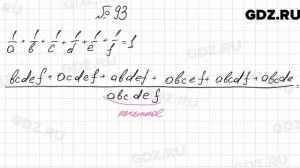 № 93
GDZ.RU
1/a + 1/b + 1/c + 1/d + 1/e + 1/f = 1
bcdef + acdef + abdef + abcef + abcdf + abcde / abcdef =
нечетное
GDZ.RU